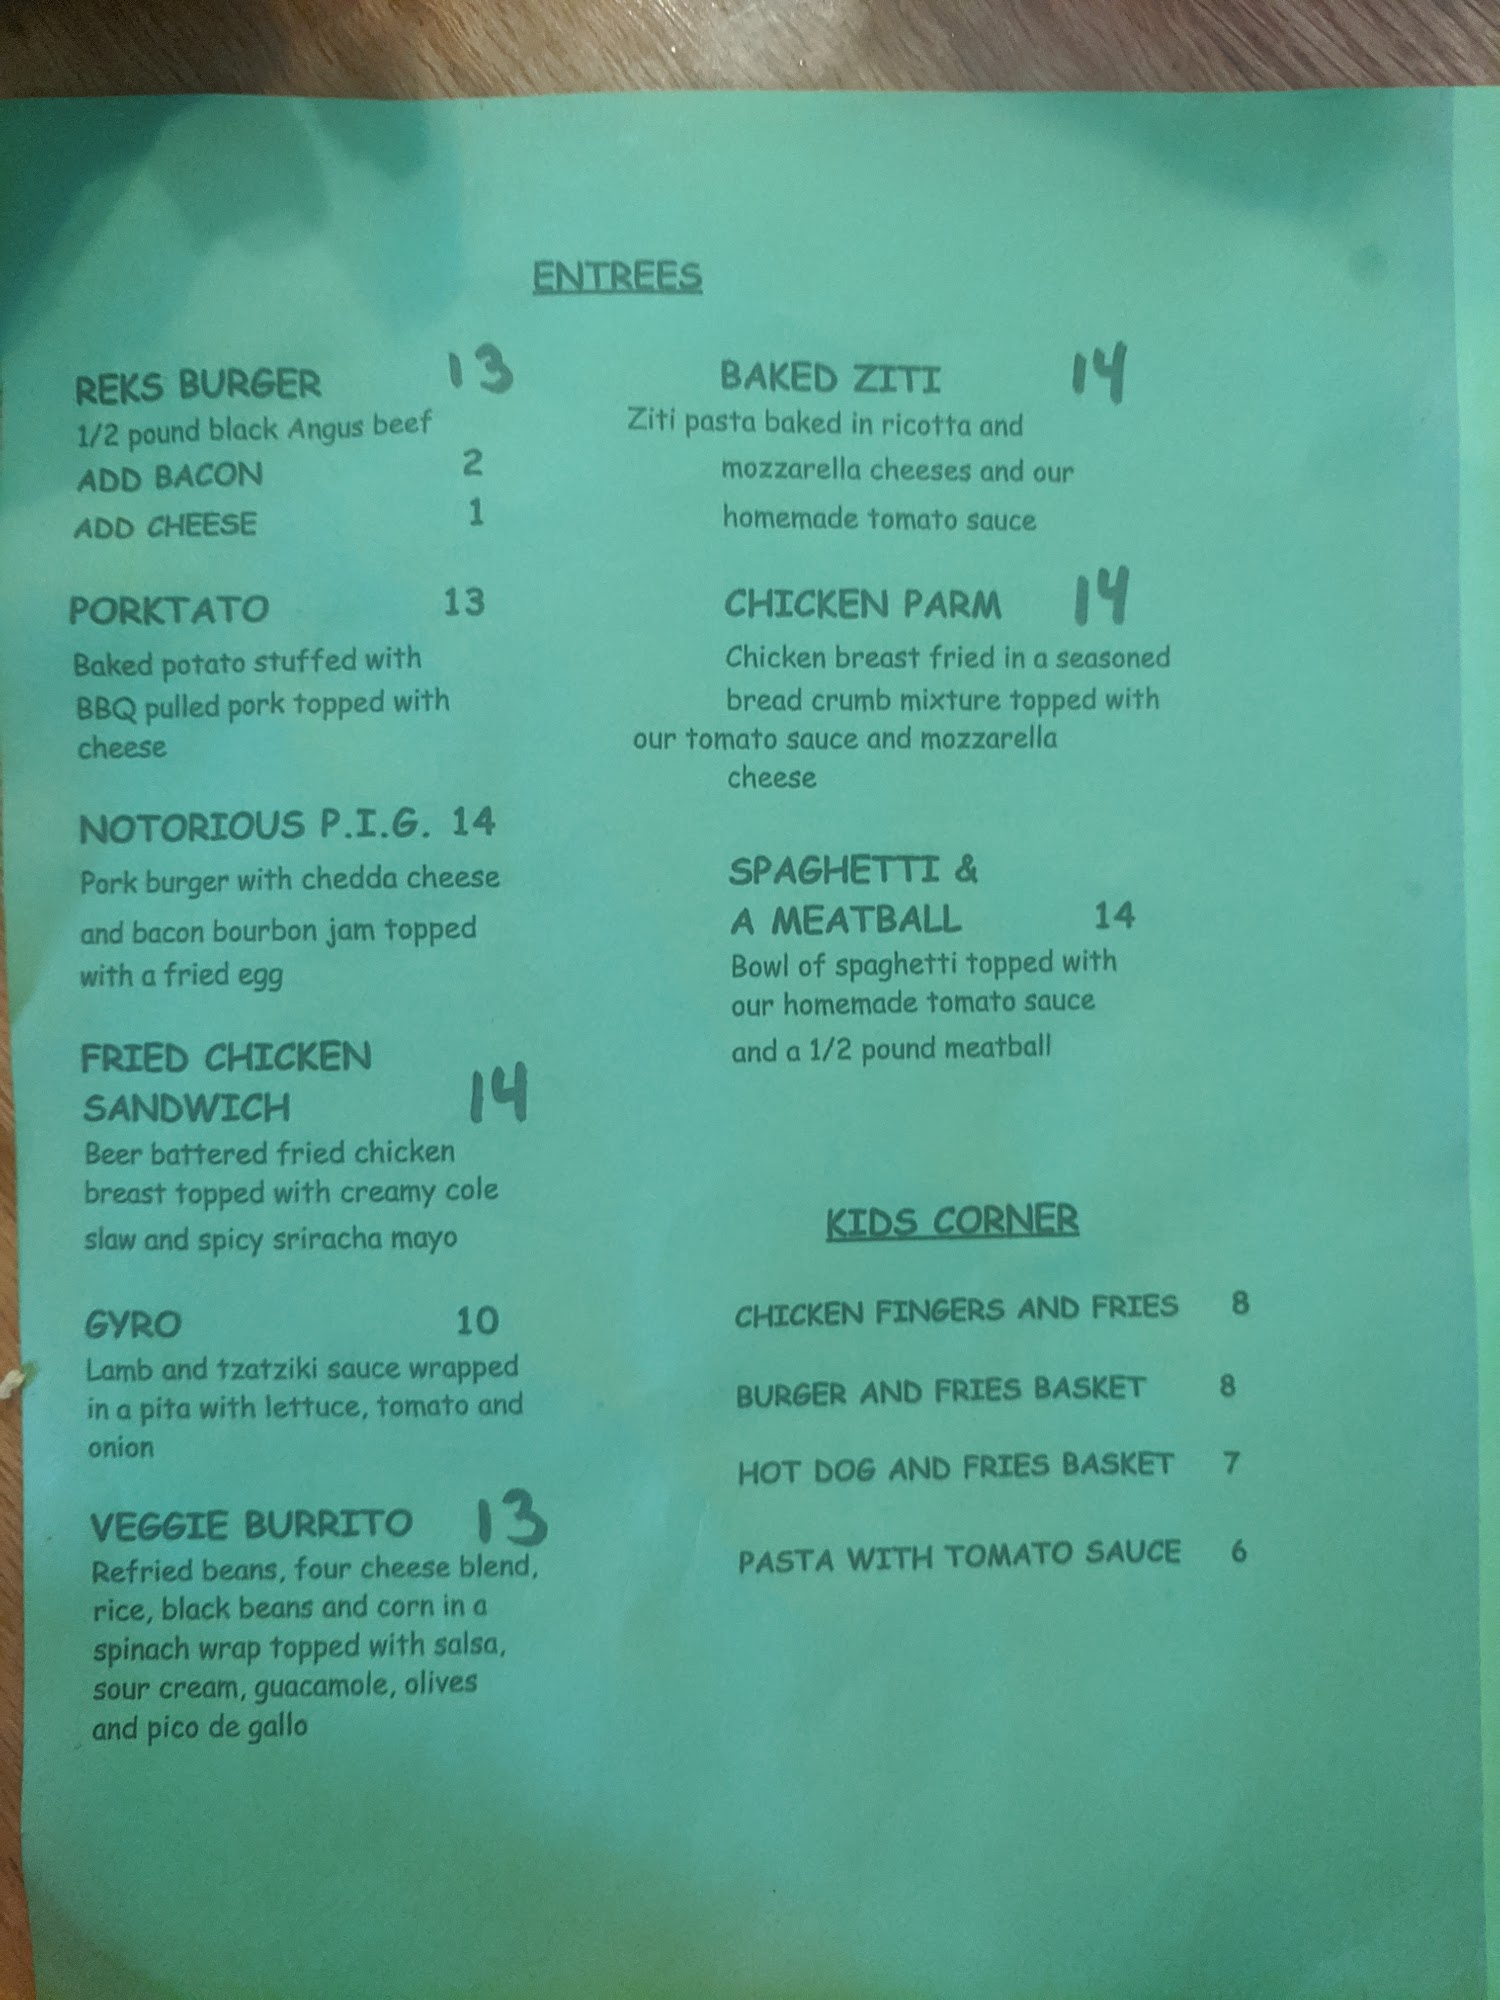 ENTREES
REKS BURGER 13
1/2 pound black Angus beef
ADD BACON 2
ADD CHEESE 1
PORKTATO 13
Baked potato stuffed with
BBQ pulled pork topped with
cheese
NOTORIOUS P.I.G. 14
Pork burger with chedda cheese
and bacon bourbon jam topped
with a fried egg
FRIED CHICKEN
SANDWICH 14
Beer battered fried chicken
breast topped with creamy cole
slaw and spicy sriracha mayo
GYRO 10
Lamb and tzatziki sauce wrapped
in a pita with lettuce, tomato and
onion
VEGGIE BURRITO 13
Refried beans, four cheese blend,
rice, black beans and corn in a
spinach wrap topped with salsa,
sour cream, guacamole, olives
and pico de gallo
BAKED ZITI 14
Ziti pasta baked in ricotta and
mozzarella cheeses and our
homemade tomato sauce
CHICKEN PARM 14
Chicken breast fried in a seasoned
bread crumb mixture topped with
our tomato sauce and mozzarella
cheese
SPAGHETTI &
A MEATBALL 14
Bowl of spaghetti topped with
our homemade tomato sauce
and a 1/2 pound meatball
KIDS CORNER
CHICKEN FINGERS AND FRIES 8
BURGER AND FRIES BASKET 8
HOT DOG AND FRIES BASKET 7
PASTA WITH TOMATO SAUCE 6